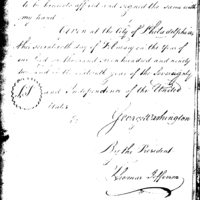 to be hereunto affixed and signed the same with
my hand.
Given at the City of Philadelphia
this seventh day of February in the Year of
our Lord one thousand seven hundred and ninety
two and in the sixteenth year of the Sovereignty
and Independence of the United
States.
Go: Washington
By the President
Thomas Jefferson